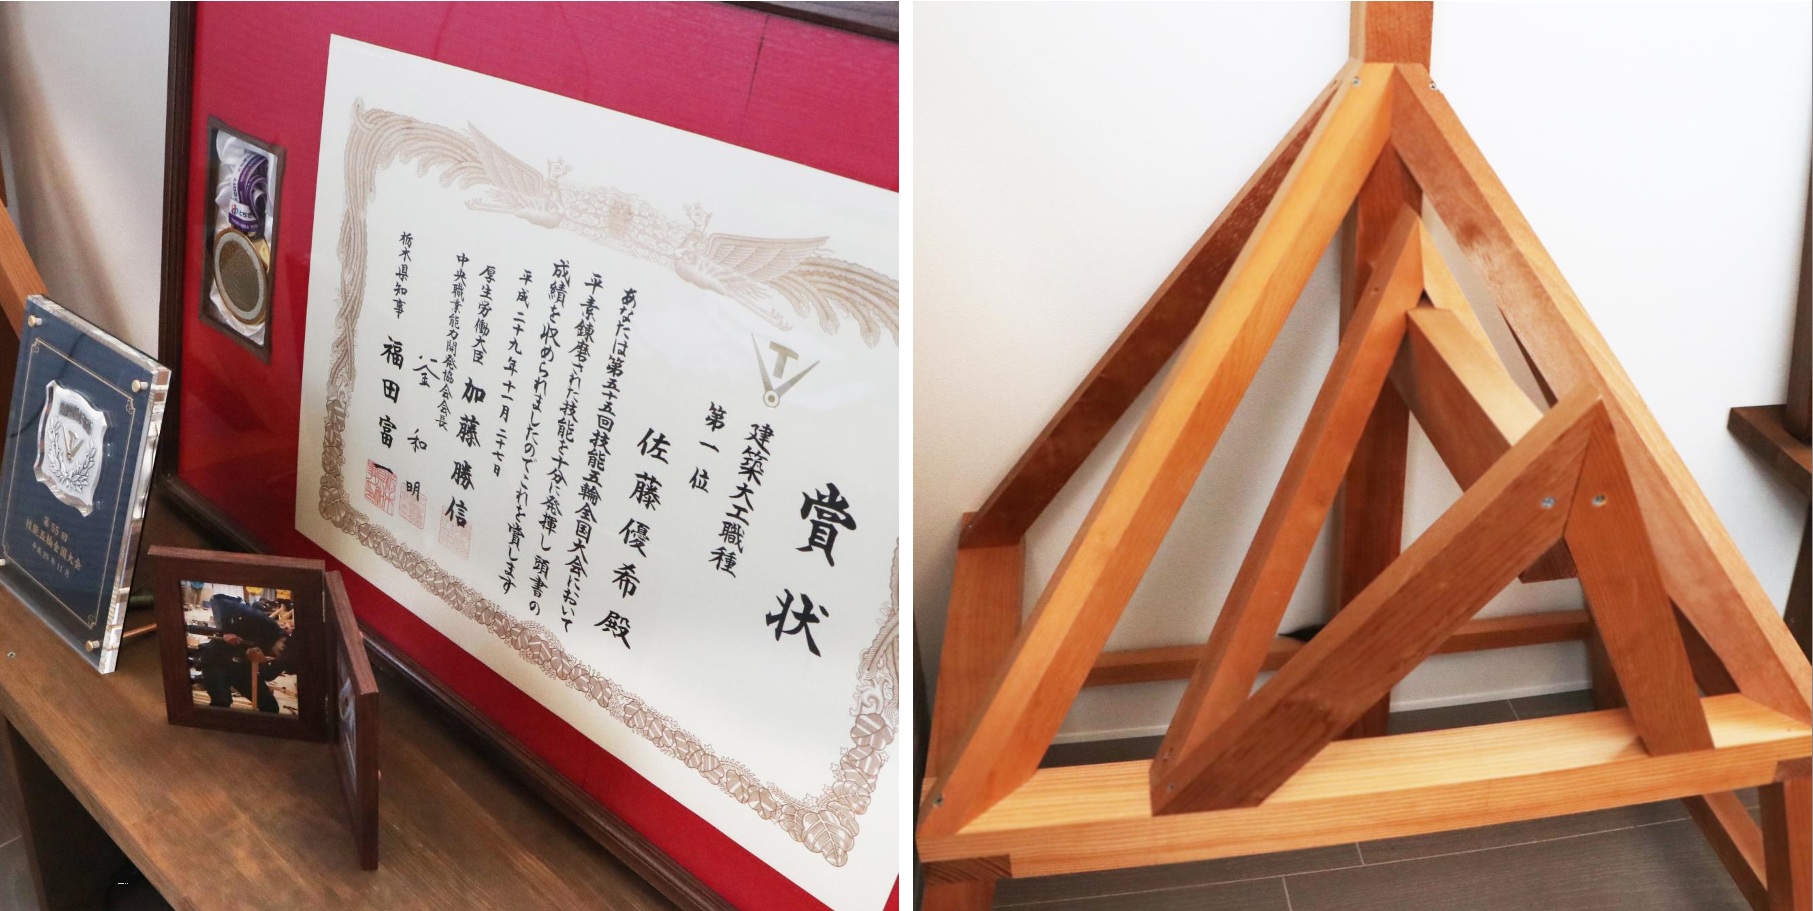 賞状
建築大工職種
第一位
佐藤優希殿
あなたは第五十五回技能五輪全国大会において
平素錬磨された技能を十分に発揮し頭書の
成績を収められましたのでこれを賞します
平成二十九年十一月二十七日
厚生労働大臣 加藤勝信
中央職業能力開発協会会長 釜和明
栃木県知事 福田富一
第55回
技能五輪全国大会
平成29年11月